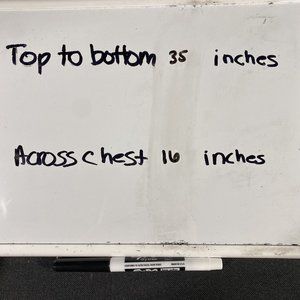 Top to bottom 35 inches
Across chest 16 inches